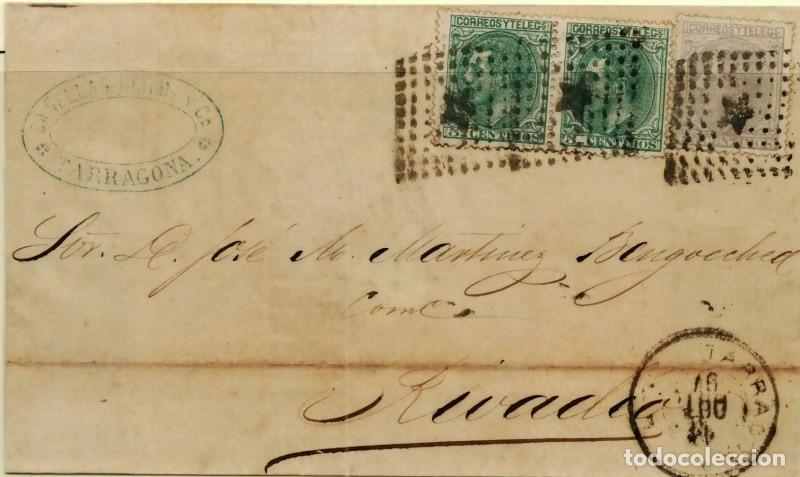 CORREOS Y TELEGS
CORREOS Y TELEGS
CORREOS Y TELEGS
5 CENTIMOS
5 CENTIMOS
Y Cª
TARRAGONA.
Sor. D. José M. Martinez Bengoechea
Comc
Rivadeo
TARRAG
todocoleccion